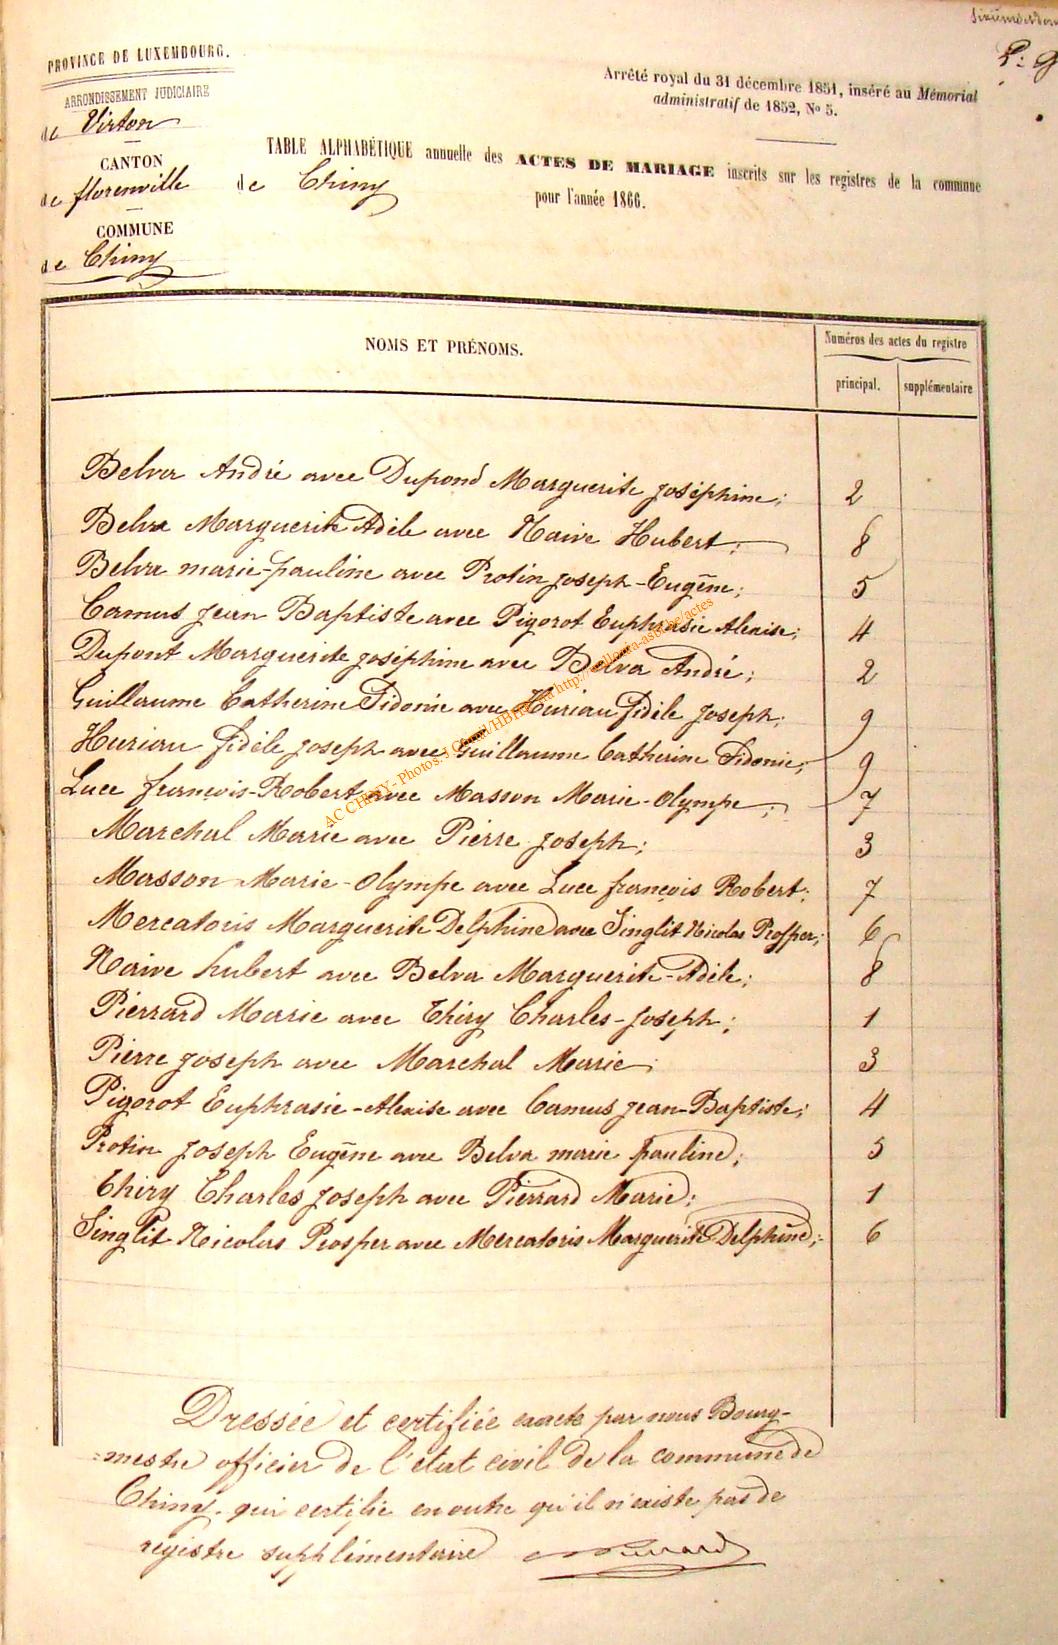 PROVINCE DE LUXEMBOURG.
ARRONDISSEMENT JUDICIAIRE
de Virton
CANTON
de florenville
COMMUNE
de Chiny
Arrêté royal du 31 décembre 1851, inséré au Mémorial
administratif de 1852, No 5.
TABLE ALPHABÉTIQUE annuelle des ACTES DE MARIAGE inscrits sur les registres de la commune
de Chiny pour l'année 1866.
NOMS ET PRÉNOMS.
Numéros des actes du registre
principal. supplémentaire
Belva André avec Dupond Marguerite joséphine; 2
Belva Marguerite Adèle avec Naive Hubert; 8
Belva marie-pauline avec Protin joseph-Eugène; 5
Camus jean Baptiste avec Pigorot Euphrasie Alexise; 4
Dupont Marguerite joséphine avec Belva André; 2
Guillaume Catherine Sidonie avec Huriau fidèle Joseph; 9
Huriau fidèle joseph avec Guillaume Catherine Sidonie; 9
Luce françois-Robert avec Masson Marie-Olympe; 7
Marchal Marie avec Pierre joseph; 3
Masson Marie-Olympe avec Luce françois Robert; 7
Mercatoris Marguerite Delphine avec Singlit Nicolas Prosper; 6
Naive hubert avec Belva Marguerite-Adèle; 8
Pierrard Marie avec Thiry Charles-Joseph; 1
Pierre joseph avec Marchal Marie; 3
Pigorot Euphrasie-Alexise avec Camus jean-Baptiste; 4
Protin Joseph Eugène avec Belva marie pauline; 5
Thiry Charles joseph avec Pierrard Marie; 1
Singlit Nicolas Prosper avec Mercatoris Marguerite Delphine; 6
Dressée et certifiée exacte par nous Bourg-
mestre officier de l'état civil de la commune de
Chiny. qui certifie en outre qu'il n'existe pas de
registre supplémentaire